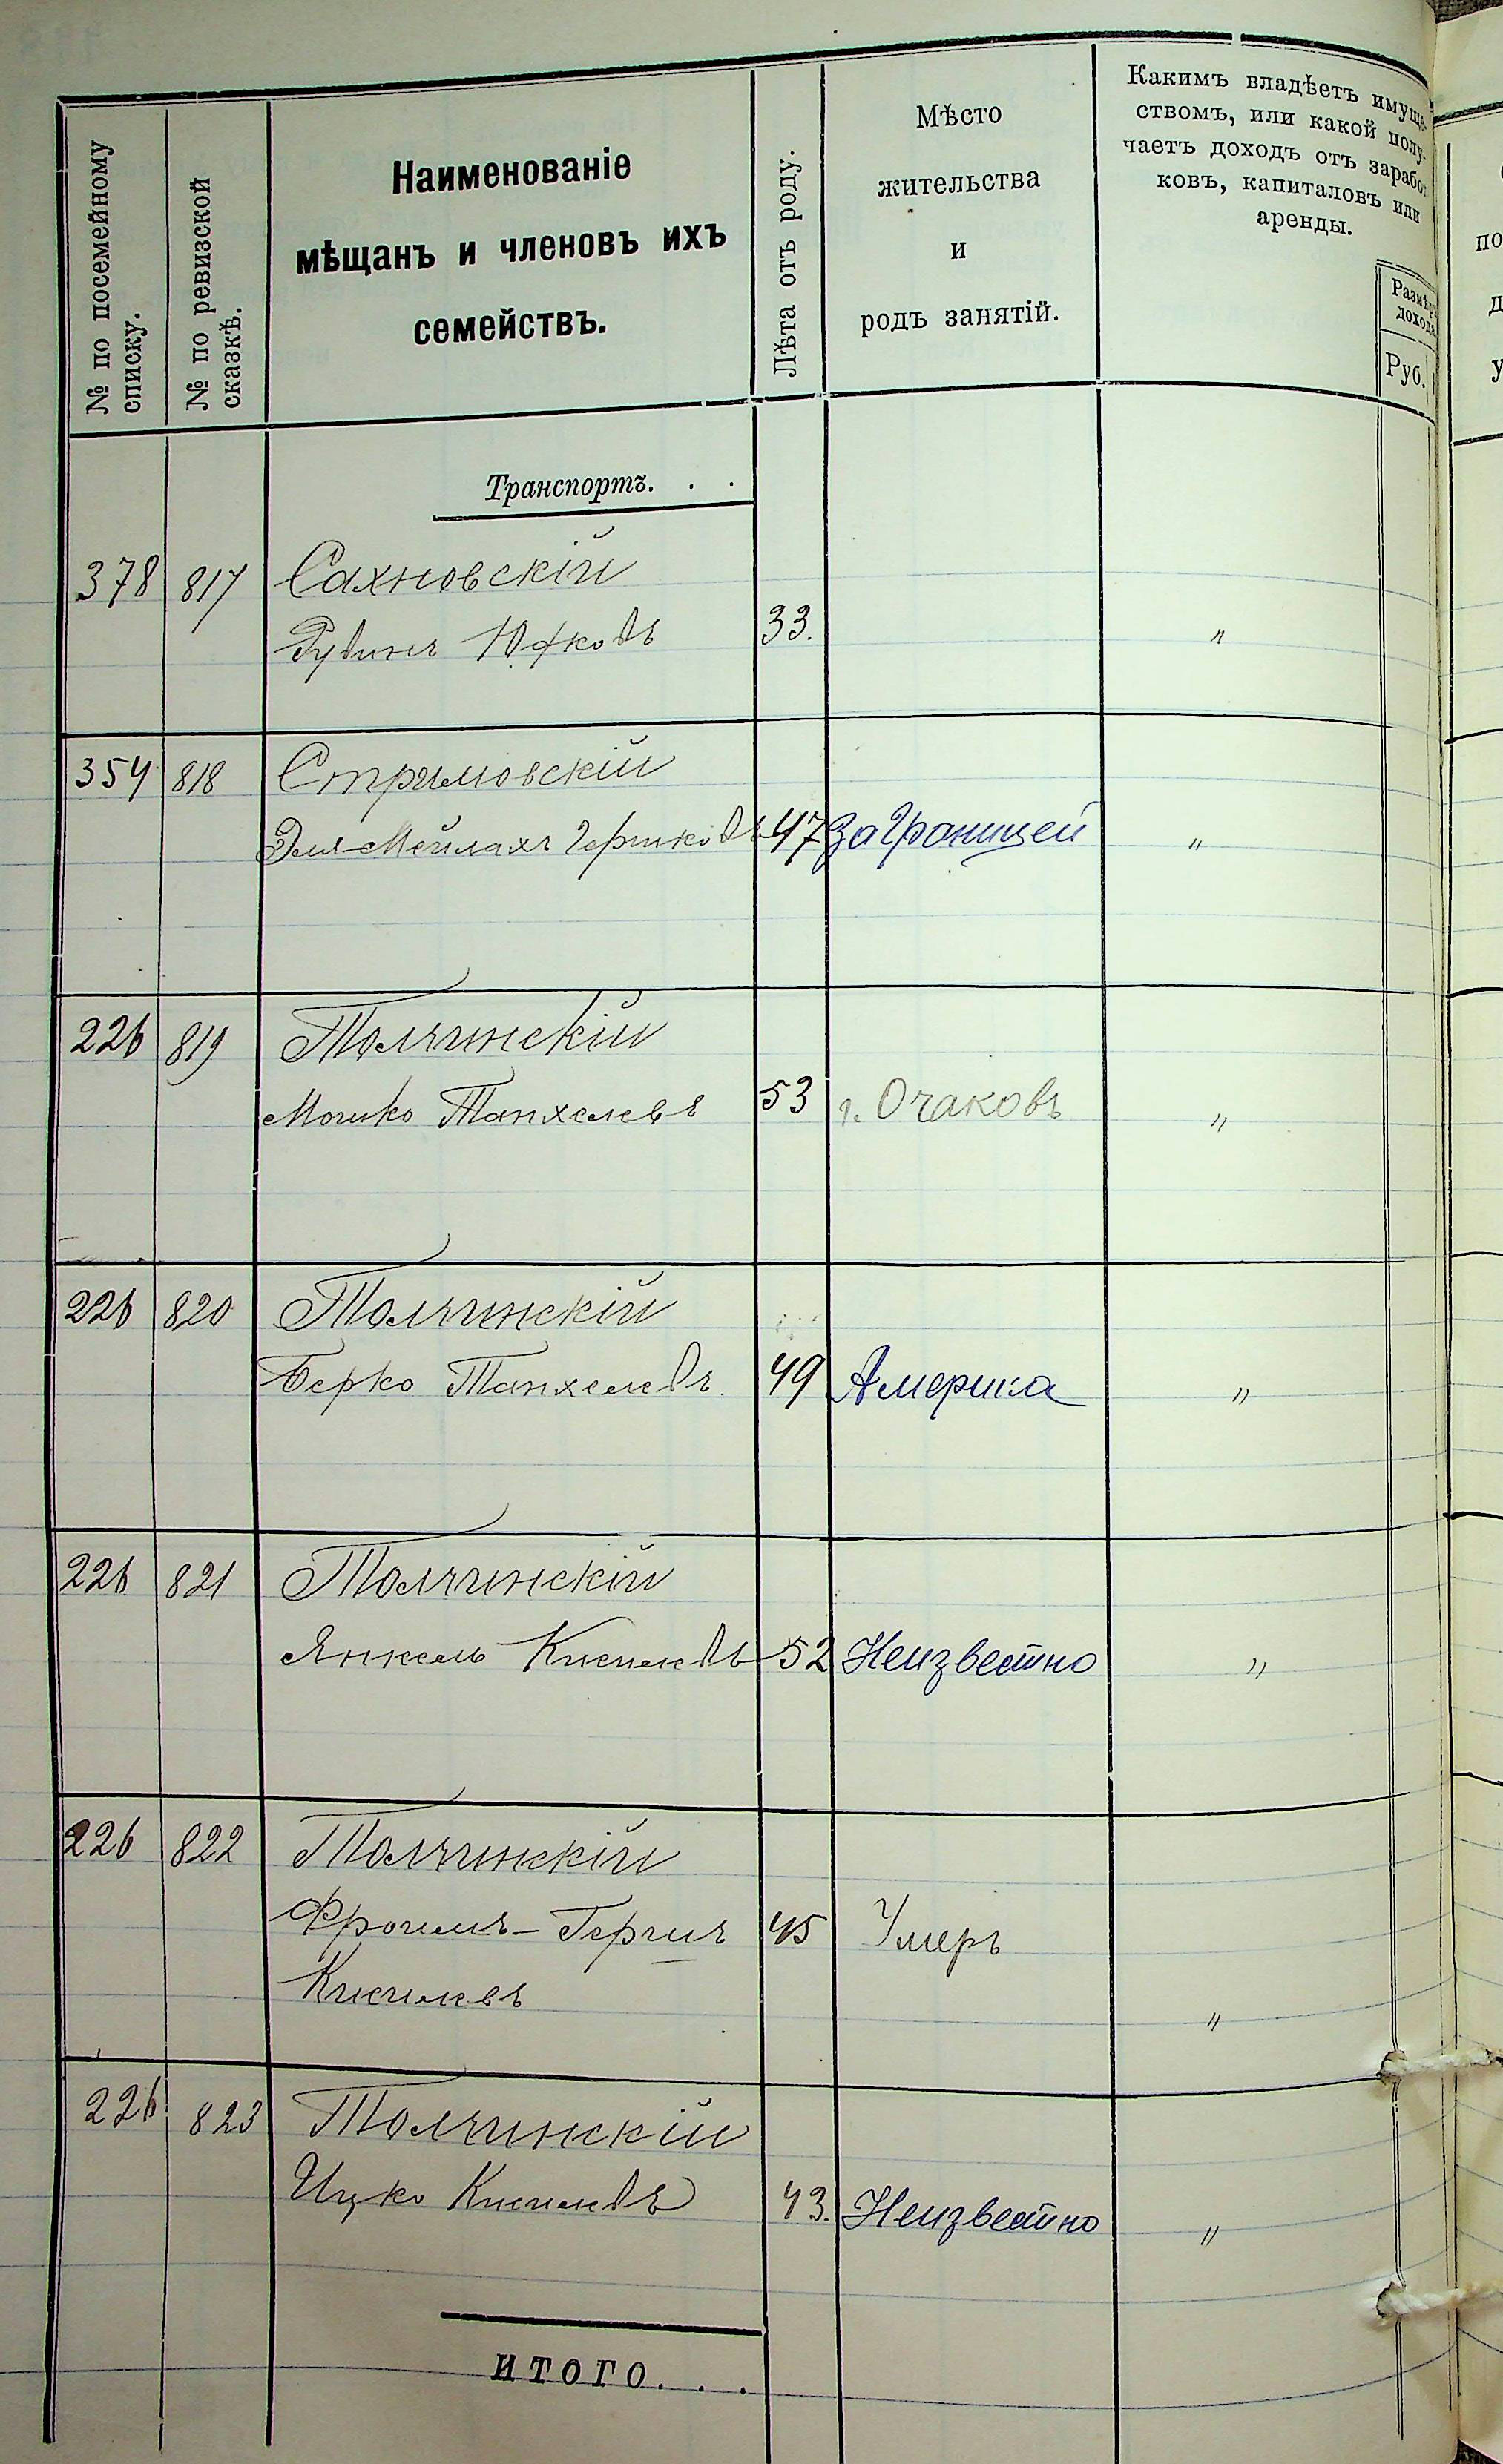 № по посемейному
списку.
№ по ревизской
сказкѣ.
Наименованіе
мѣщанъ и членовъ ихъ
семействъ.
Лѣта отъ роду.
Мѣсто
жительства
и
родъ занятій.
Какимъ владѣетъ имуще-
ствомъ, или какой полу-
чаетъ доходъ отъ заработ-
ковъ, капиталовъ или
аренды.
Размѣръ
дохода
Руб.
Транспортъ. . .
378 817 Сахновскій
Рувинъ Юфковъ 33. "
354 818 Стримовскій
Эля-Мейлахъ Гершковъ 47 За Границей "
226 819 Толчинскій
Мошко Танхелевъ 53 г. Очаковъ "
226 820 Толчинскій
Берко Танхелевъ 49 Америка "
226 821 Толчинскій
Янкель Кисилевъ 52 Неизвестно "
226 822 Толчинскій
Фроимъ-Гершъ 45 Умеръ
Кисилевъ "
226 823 Толчинскій
Ицко Кисилевъ 43. Неизвестно "
ИТОГО. . .